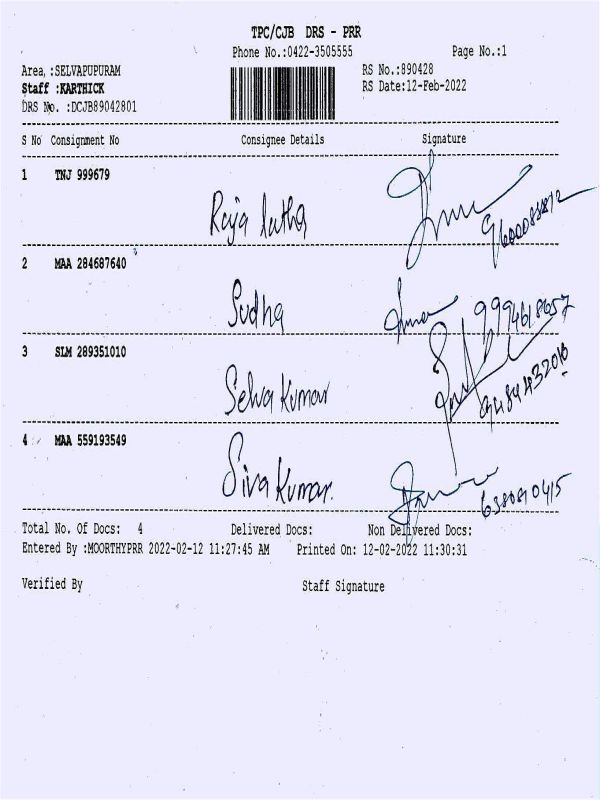 TPC/CJB DRS - PRR
Phone No.:0422-3505555 Page No.:1
Area :SELVAPUPURAM RS No.:890428
Staff :KARTHICK RS Date:12-Feb-2022
DRS No. :DCJB89042801
S No Consignment No Consignee Details Signature
1 TNJ 999679
Raja latha 9600088812
2 MAA 284687640
Sudha 9994618657
3 SLM 289351010
Selva Kumar
4 MAA 559193549
Siva Kumar.
Total No. Of Docs: 4 Delivered Docs: Non Delivered Docs:
Entered By :MOORTHYPRR 2022-02-12 11:27:45 AM Printed On: 12-02-2022 11:30:31
Verified By Staff Signature